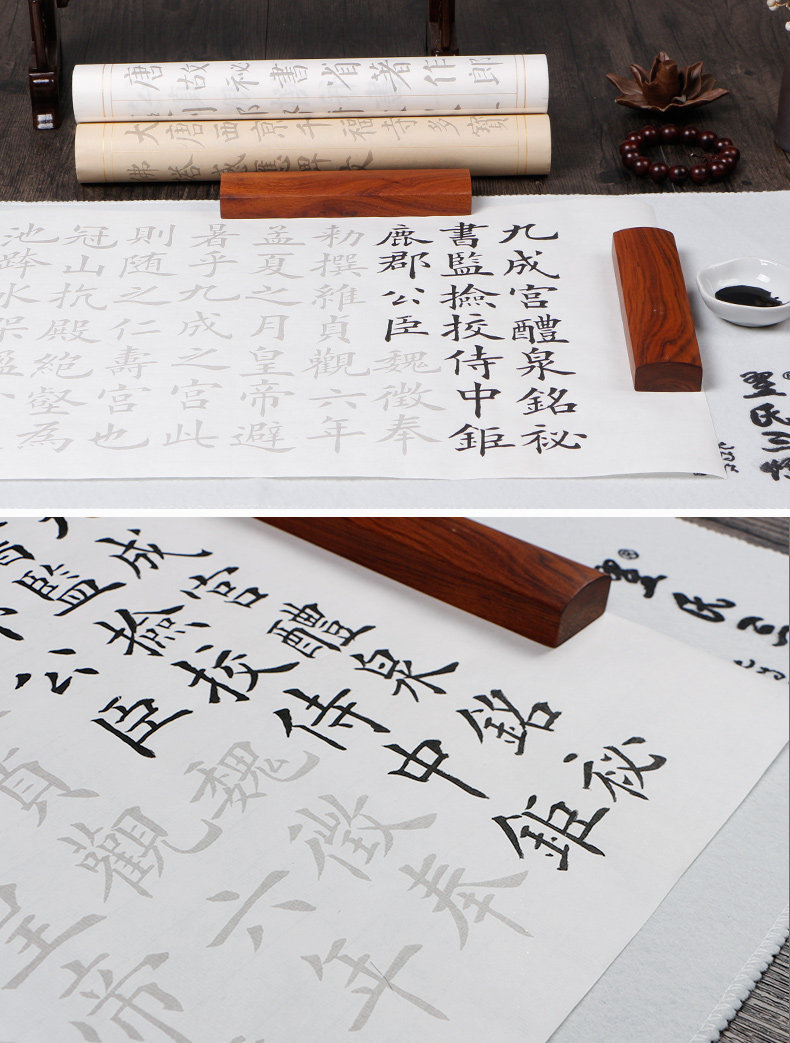 唐故秘書省著作郎
大唐西京千福寺多寶
佛塔感應碑文
九成宫醴泉銘祕
書監撿挍侍中鉅
鹿郡公臣魏徵奉
勑撰維貞觀六年
孟夏之月皇帝避
暑乎九成之宫此
則随之仁壽宫也
冠山抗殿絶壑為
池跨水架楹
成宫醴泉銘祕
監撿挍侍中鉅
公臣魏徵奉
貞觀六年
皇帝